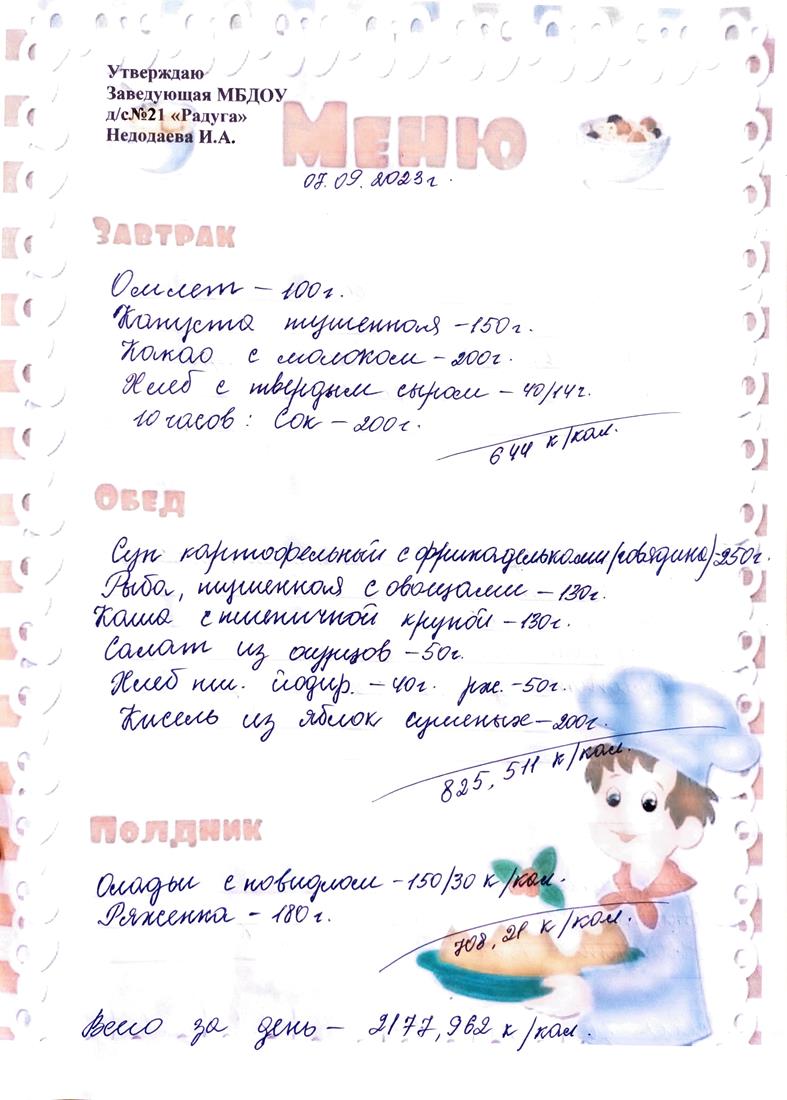 Утверждаю
Заведующая МБДОУ
д/с№21 «Радуга»
Недодаева И.А.
Меню
07.09.2023г.
Завтрак
Омлет – 100г.
Капуста тушенная – 150г.
Какао с молоком – 200г.
Хлеб с твердым сыром – 40/14г.
10 часов: Сок – 200г.
644 к/кал.
Обед
Суп картофельный с фрикадельками (говядина)-250г.
Рыба, тушенная с овощами – 130г.
Каша с пшеничной крупой – 130г.
Салат из огурцов – 50г.
Хлеб пш. йодир. – 40г. рж. – 50г.
Кисель из яблок сушеных – 200г.
825,511 к/кал.
Полдник
Оладьи с повидлом – 150/30 к/кал.
Ряженка – 180г.
708,21 к/кал.
Всего за день – 2177,962 к/кал.